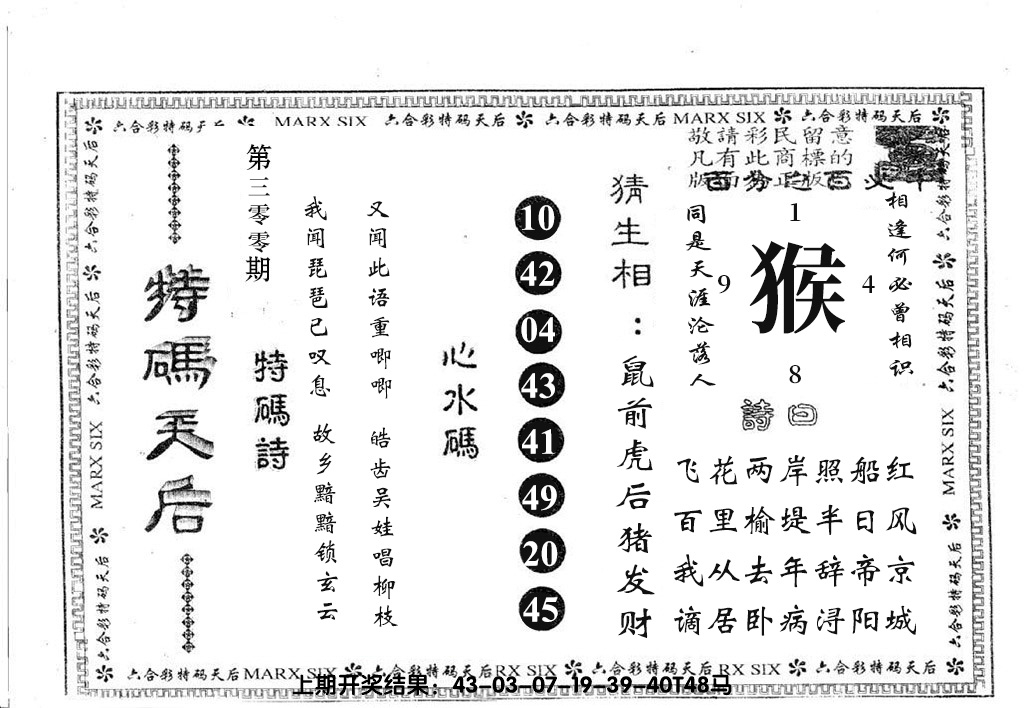 六合彩特码天后 MARX SIX 六合彩特码天后 六合彩特码天后 MARX SIX 六合彩特码天后
敬請彩民留意
凡有此商標的
相逢何必曾相识
同是天涯沦落人
1
9 猴 4
8
詩曰
飞花两岸照船红
百里榆堤半日风
我从去年辞帝京
谪居卧病浔阳城
猜生相：鼠前虎后猪发财
10
42
04
43
41
49
20
45
心水碼
又闻此语重唧唧 皓齿吴娃唱柳枝
我闻琵琶已叹息 故乡黯黯锁玄云
第三零零期
特碼詩
特碼天后
六合彩特码天后 六合彩特码天后 MARX SIX 六合彩特码天后
六合彩特码天后 六合彩特码天后 MARX SIX 六合彩特码天后
六合彩特码天后MARX SIX 六合彩特码天后RX SIX 六合彩特码天后RX SIX 六合彩特码天后
上期开奖结果：43-03-07-19-39-40T48马